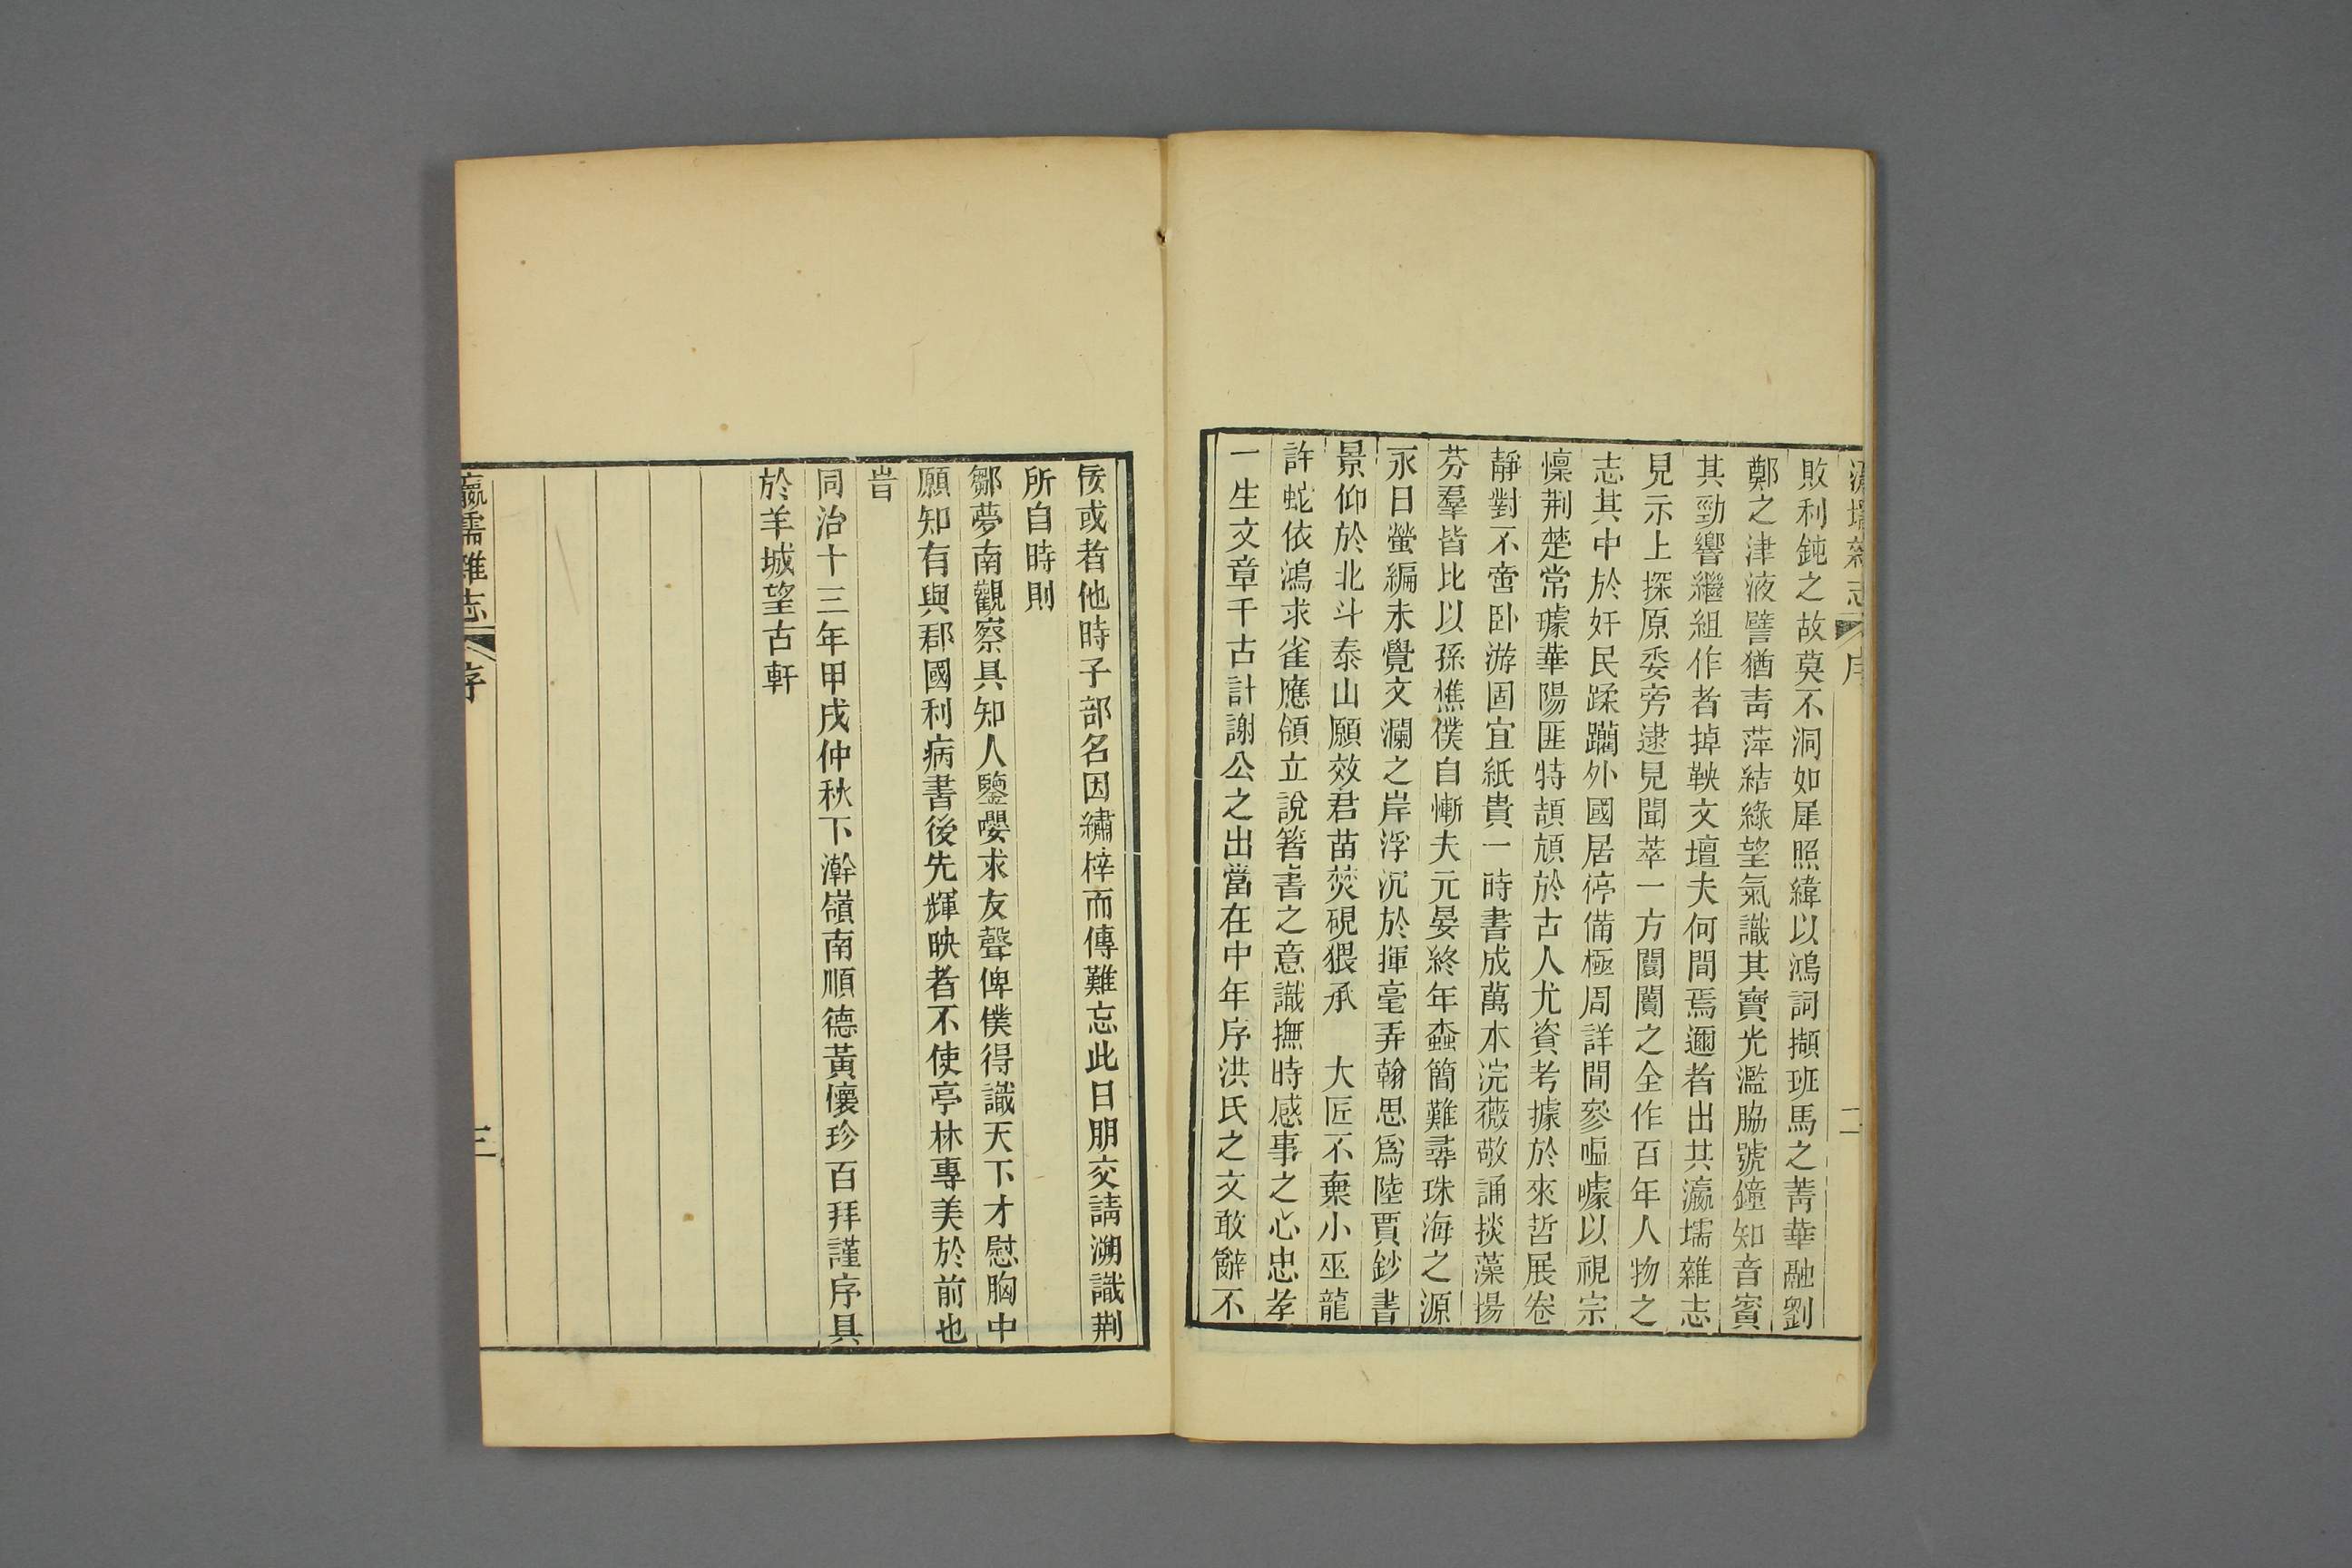 瀛壖雜志 序 二
敗利鈍之故莫不洞如犀照緯以鴻詞擷班馬之菁華融劉
鄭之津液譬猶靑萍結綠望氣識其寶光濫脇號鐘知音賓
其勁響繼組作者掉鞅文壇夫何間焉邇者出其瀛壖雜志
見示上探原委旁逮見聞萃一方闤闠之全作百年人物之
志其中於奸民蹂躪外國居停備極周詳間參嘔噱以視宗
懍荆楚常璩華陽匪特頡頏於古人尤資考據於來哲展卷
靜對不啻卧游固宜紙貴一時書成萬本浣薇敬誦掞藻揚
芬羣皆比以孫樵僕自慚夫元晏終年蠹簡難尋珠海之源
永日螢編未覺文瀾之岸浮沉於揮毫弄翰思爲陸賈鈔書
景仰於北斗泰山願效君苗焚硯猥承　大匠不棄小巫龍
許蛇依鴻求雀應領立說箸書之意識撫時感事之心忠孝
一生文章千古計謝公之出當在中年序洪氏之文敢辭不
俟或者他時子部名因繡梓而傳難忘此日朋交請溯識荆
所自時則
鄒夢南觀察具知人鑒嚶求友聲俾僕得識天下才慰胸中
願知有與郡國利病書後先輝映者不使亭林專美於前也
旹
同治十三年甲戌仲秋下澣嶺南順德黃懷珍百拜謹序具
於羊城望古軒
瀛壖雜志 序 三